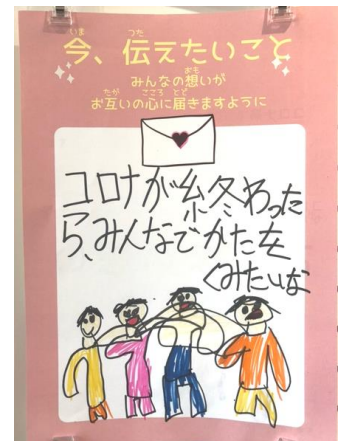 今、伝えたいこと
みんなの想いが
お互いの心に届きますように
コロナが終わった
ら、みんなでかたを
くみたいな